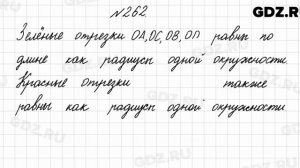 GDZ.RU
№262.
Зелёные отрезки ОА, ОС, ОВ, ОП равны по
длине как радиусы одной окружности
Красные отрезки также
равны как радиусы одной окружности